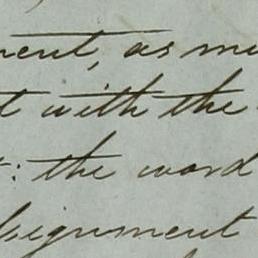 ment, as mu
t with the
: the word
signment